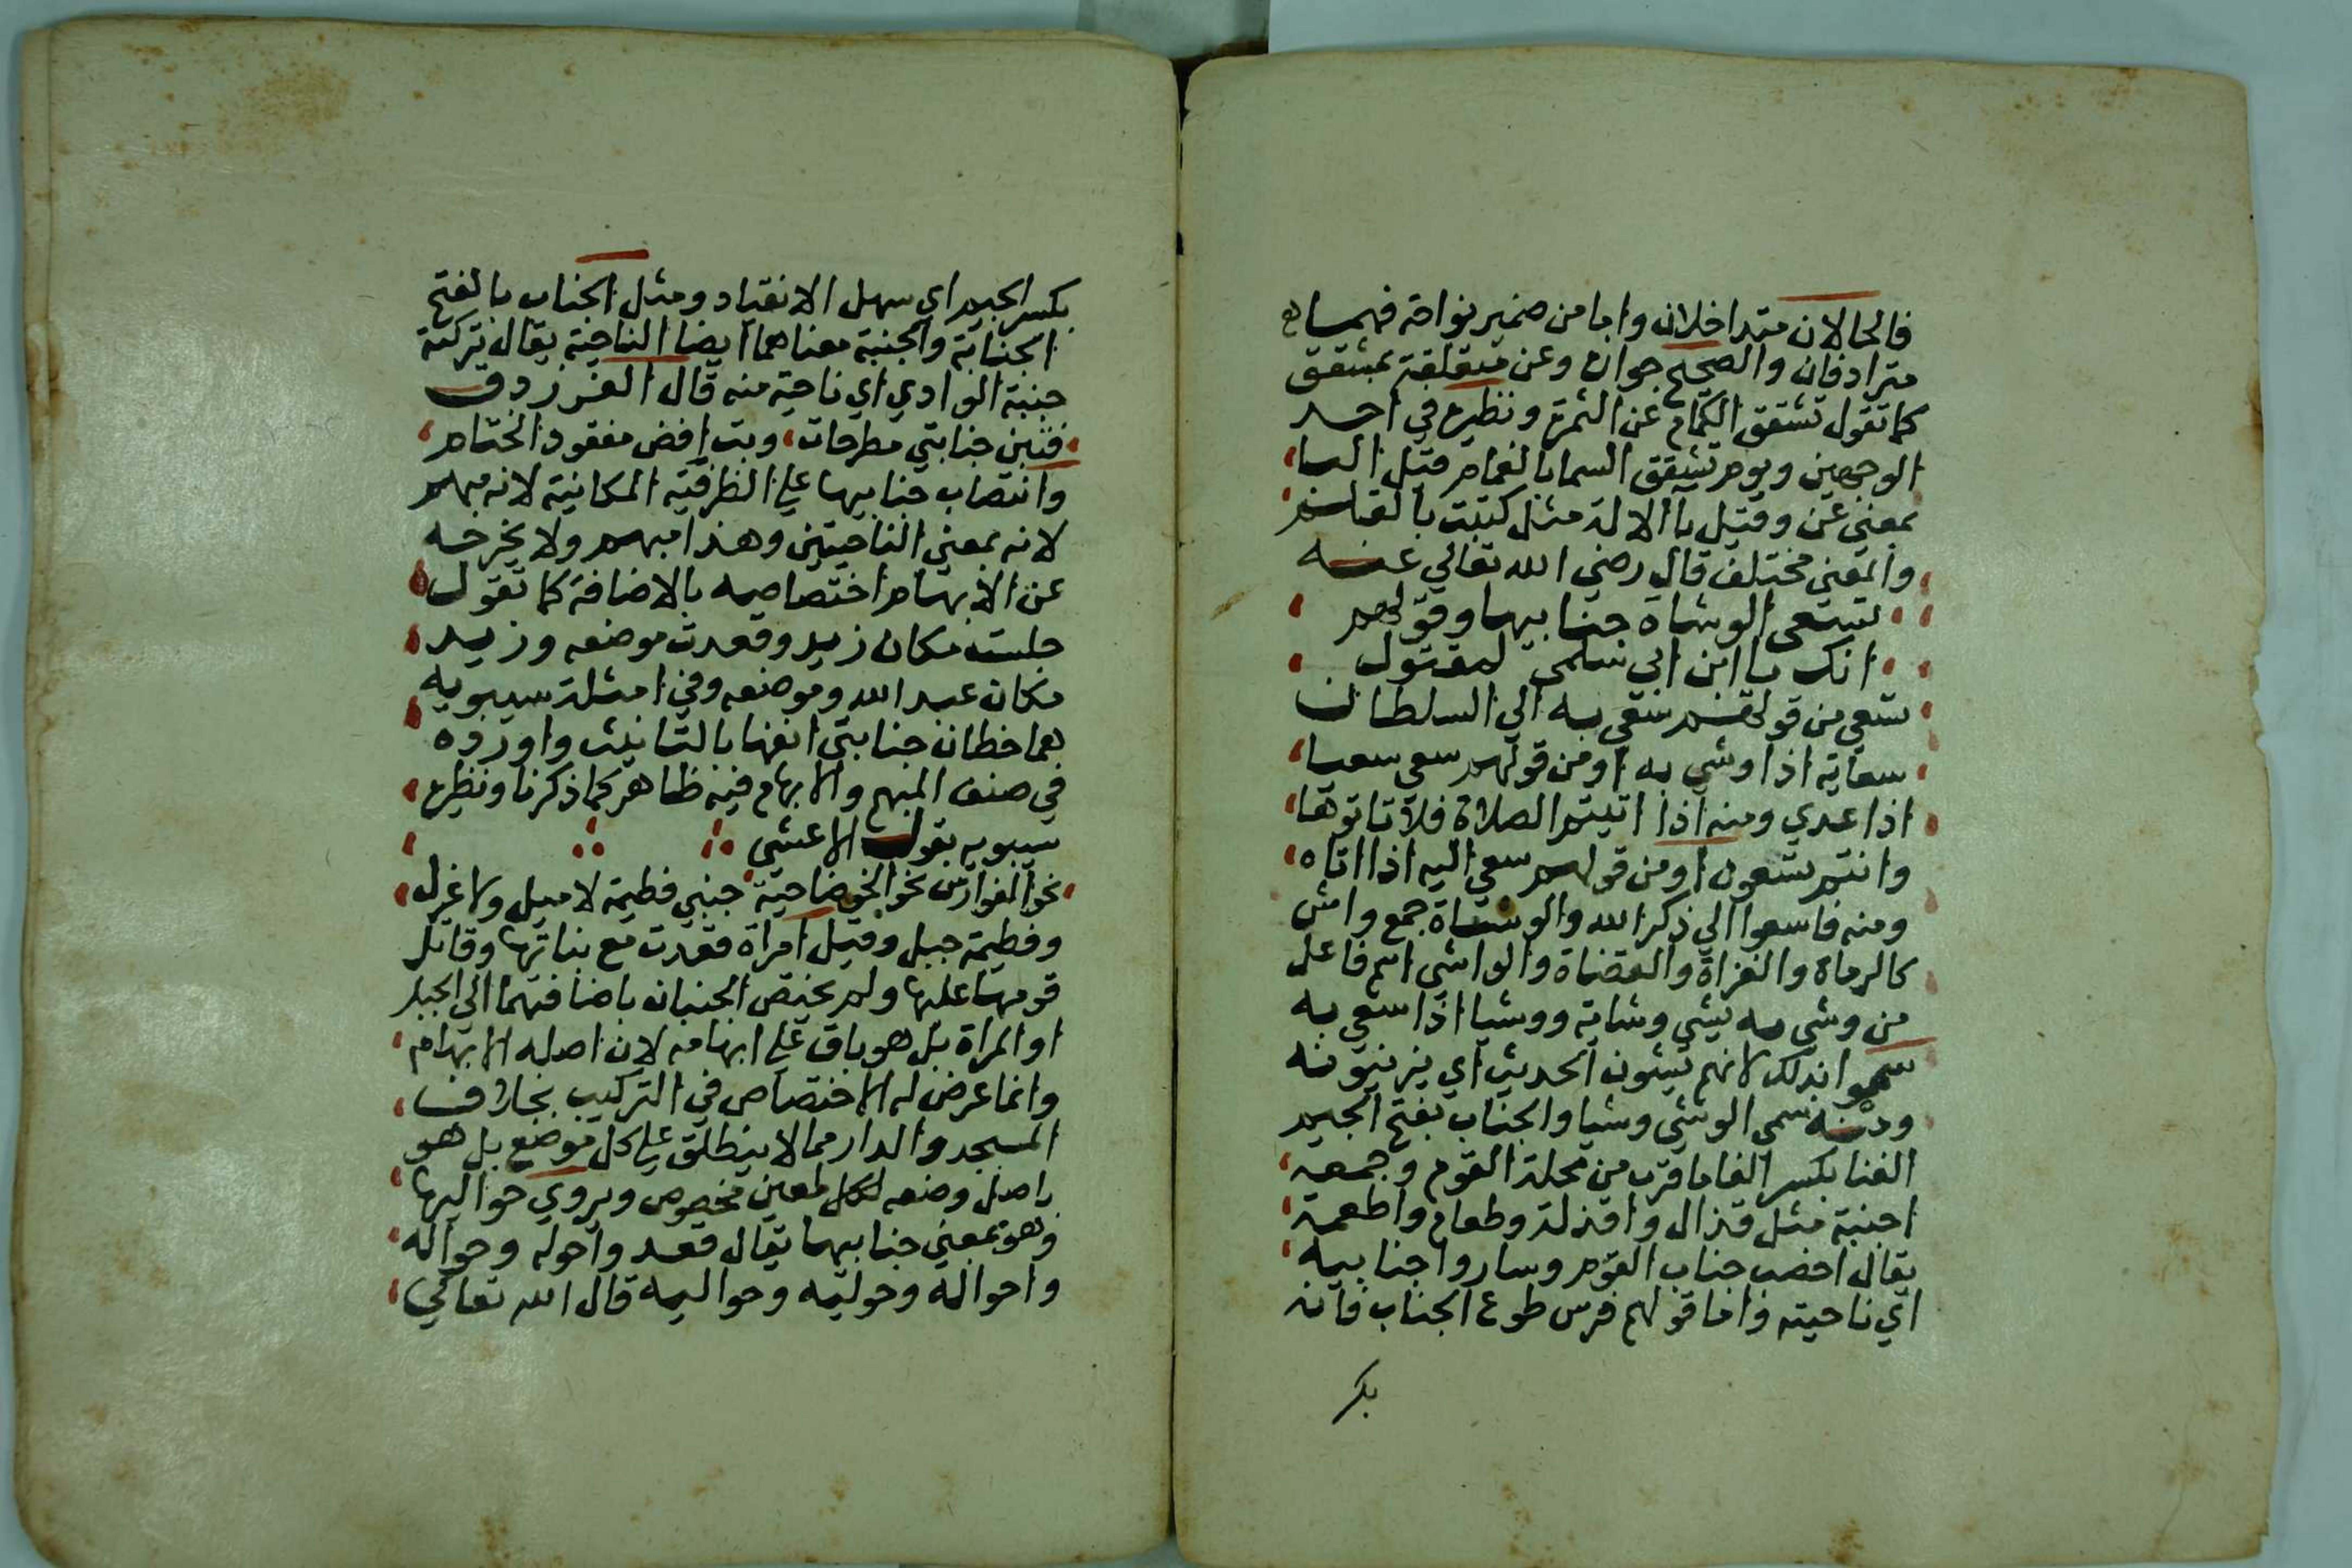 فالحالان متداخلان واما من ضمير نواحة فهما
مترادفان والصحيح جوازه وعن متعلقة بمشقق
كما تقول تشقق الكمام عن الثمرة ونظيره في احد
الوجهين ويوم تشقق السما بالغمام قيل البا
بمعنى عن وقيل باالالة مثل كتبت بالقلم
والمعنى مختلف قال رضي الله تعالي عنه
تسعى الوشاة جنابيها وقولهم
انك يا ابن ابي سلمى لمقتول
تسعى من قولهم سعي به الي السلطان
سعاية اذا وشي به او من قولهم سعي سعيا
اذا عدي ومنه اذا اتيتم الصلاة فلا تاتوها
وانتم تسعون او من قولهم سعي اليه اذا اتاه
ومنه فاسعوا الي ذكر الله والوشاة جمع واش
كالرماة والغزاة والقضاة والواشي اسم فاعل
من وشي به يشي وشاية ووشيا اذا سعي به
سموا بذلك لانهم يشون الحديث اي يزينونه
ومنه سمي الوشي وشيا والجناب بفتح الجيم
الفنا بكسر الفا ما قرب من محلة القوم وجمعه
اجنبة مثل قذال واقذلة وطعام واطعمة
يقال اخصب جناب القوم وساروا جنابيه
اي ناحيته واما قولهم فرس طوع الجناب فانه
بكر
بكسر الجيم اي سهل الانقياد ومثل الجناب بالفتح
الجنابة والجنبة معناهما ايضا الناحية يقال تركته
جنبة الوادي اي ناحية منه قال الفرزدق
فبتن جنابتي مطرحات وبت افض مفقود الختام
وانتصاب جنابيها علي الظرفية المكانية لانه مبهم
لانه بمعني الناحيتين وهذا مبهم ولا يخرجه
عن الابهام اختصاصه بالاضافة كما تقول
جلست مكان زيد وقعدت موضعه وزيد
مكان عبد الله وموضعه وفي امثلة سيبويه
هما خطان جنابتي انفها بالتانيث واورده
في صنف المبهم والابهام فيه ظاهر كما ذكرنا ونظيره
سيبويه بقول الاعشي
نحن الفوارس نحو الخوضاحية جنبي فطيمة لا ميل ولا غزل
وفطيمة جبل وقيل امراة فقدت مع بناتها وقاتل
قومها عليها ولم يختص الجنبان باضافتهما الي الجبل
او المراة بل هو باق علي ابهامه لان اصله الابهام
وانما عرض له الاختصاص في التركيب بخلاف
المسجد والدار مما لا ينطلق علي كل موضع بل هو
باصل وضعه لكل معين مخصوص ويروي حواليها
وهو بمعني جنابيها يقال قعد واحوله وحواله
واحواله وحوليه وحواليه قال الله تعالي